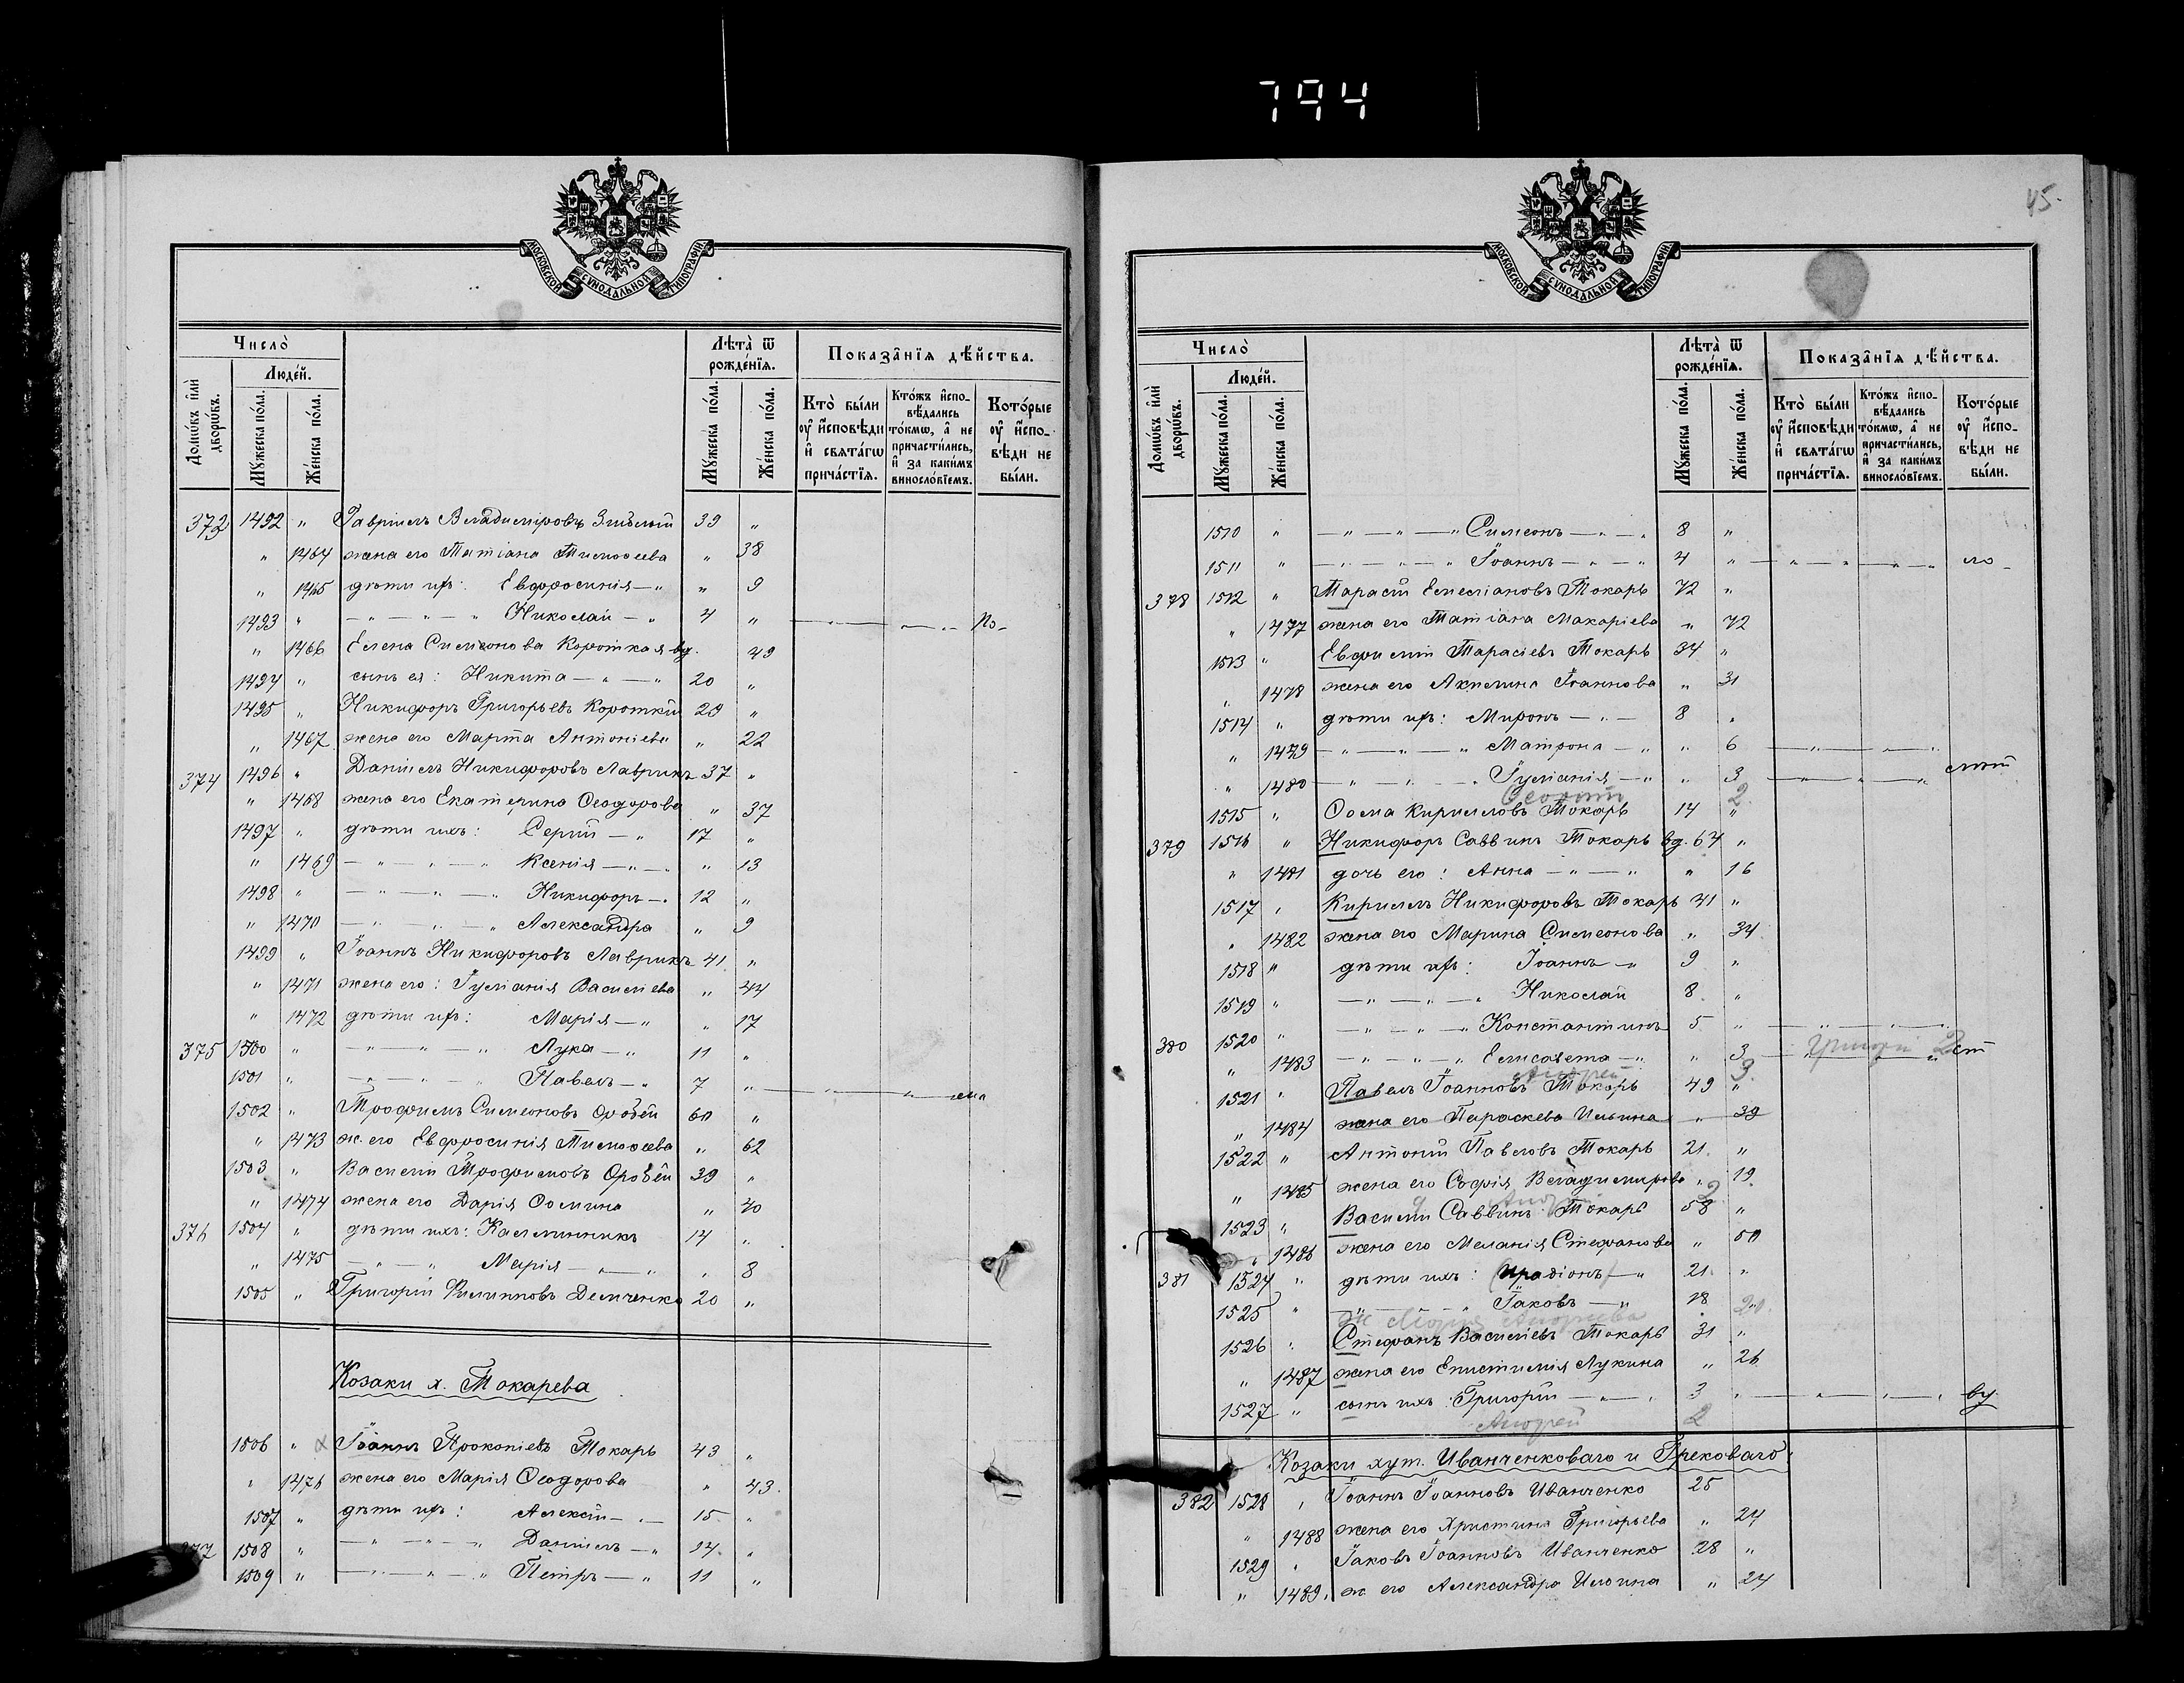 794
45.
МОСКОВСКОЙ СѴНОДАЛЬНОЙ ТИПОГРАФІИ
Число̀
Людéй.
Домѡ́въ и҆лѝ дворѡ́въ.
Мꙋ́жеска по́ла.
Же́нска по́ла.
Лѣта̀ ѿ рожде́нїѧ.
Мꙋ́жеска по́ла.
Же́нска по́ла.
Показа̑нїѧ дѣ́йства.
Кто̀ бы́ли оу҆ и҆сповѣ́ди и҆ свѧта́гѡ прича́стїѧ.
Кто́жъ и҆спо-вѣ́дались то́кмѡ, а҆ не причасти́лись, и҆ за каки́мъ винословїемъ.
Кото́рые оу҆ и҆спо-вѣ́ди не бы́ли.
372 1492 " Гавріилъ Владиміровъ 39 "
" 1464 жена его Татіана Тимоѳеева " 38
" 1465 дѣти ихъ: Евфросинія —" " 9
1493 " — " — " — " Николай — " 4 "
" 1466 Елена Симеонова Короткая вд. 49
1494 " сынъ ея: Никита — " — " 20 "
1495 " Никифоръ Григорьевъ Короткій 29 "
" 1467 жена его Марта Антоніева " 22
374 1496 " Даніилъ Никифоровъ Лаврикъ 37 "
" 1468 жена его Екатерина Ѳеодорова " 37
1497 " дѣти ихъ: Сергій — " 17 "
" 1469 — " — " — " Ксенія — " — " " 13
1498 " — " — " — " Никифоръ — " 12 "
" 1470 — " — " — " Александра " 9
1499 " Іоаннъ Никифоровъ Лаврикъ 41 "
" 1471 жена его: Іуліанія Василіева " 44
" 1472 дѣти ихъ: Марія — " " 17
375 1500 " — " — " — " Лука — " 11 "
1501 " — " — " — " Павелъ — " 7 "
1502 " Трофимъ Симеоновъ 60 "
" 1473 ж. его Евфросинія Тимоѳеева " 62
1503 " Василій Трофимовъ 39 "
" 1474 жена его Дарія Ѳомина " 40
376 1504 " дѣти ихъ: Каллиникъ 14 "
" 1475 — " — " Марія — " — " " 8
1505 " Григорій Филипповъ Демченко 20 "
Козаки х. Токарева
1506 " Іоаннъ Прокопіевъ Токарь 43 "
" 1476 жена его Марія Ѳеодорова " 43.
1507 " дѣти ихъ: Алексій — " — 15 "
377 1508 " — " — " — " Даніилъ — " 14 "
1509 " — " — " — " Петръ — " 11 "
МОСКОВСКОЙ СѴНОДАЛЬНОЙ ТИПОГРАФІИ
Число̀
Людéй.
Домѡ́въ и҆лѝ дворѡ́въ.
Мꙋ́жеска по́ла.
Же́нска по́ла.
Лѣта̀ ѿ рожде́нїѧ.
Мꙋ́жеска по́ла.
Же́нска по́ла.
Показа̑нїѧ дѣ́йства.
Кто̀ бы́ли оу҆ и҆сповѣ́ди и҆ свѧта́гѡ прича́стїѧ.
Кто́жъ и҆спо-вѣ́дались то́кмѡ, а҆ не причасти́лись, и҆ за каки́мъ винословїемъ.
Кото́рые оу҆ и҆спо-вѣ́ди не бы́ли.
1510 " — " — " — " Симеонъ — " — " 8 "
1511 " — " — " — " Іоаннъ — " — " 4 "
378 1512 " Тарасій Емеліановъ Токарь 72 "
" 1477 жена его Татіана Макаріева " 72
1513 " Евфимій Тарасіевъ Токарь 34 "
" 1478 жена его Акилина Іоаннова " 31
1514 " дѣти ихъ: Миронъ — " — 8 "
" 1479 — " — " — " Матрона — " " 6
" 1480 — " — " — " Іуліанія — " " 3
2
1515 " Ѳома Кирилловъ Токарь 14 "
379 1516 " Никифоръ Саввинъ Токарь вд. 67 "
" 1481 дочь его: Анна — " — " " 16
1517 " Кириллъ Никифоровъ Токарь 41 "
" 1482 жена его Марина Симеонова " 34
1518 " дѣти ихъ: Іоаннъ — " 9 "
1519 " — " — " — " Николай 8 "
380 1520 " — " — " — " Константинъ 5 "
" 1483 — " — " — " Елисавета — " " 3 Григорій
Андрей 3.
1521 " Павелъ Іоанновъ Токарь 49 "
" 1484 жена его Параскева Ильина " 39
1522 " Антоній Павловъ Токарь 21 "
" 1485 жена его Софія Владимирова " 19.
Андрей 2
1523 " Василій Саввинъ Токарь 58 "
" 1486 жена его Меланія Стефанова " 50
381 1524 " дѣти ихъ: (Иродіонъ) — " 21 "
1525 " — " — " Іаковъ — " 18
ж Марія Андреева 20.
1526 " Стефанъ Василіевъ Токарь 31 "
" 1487 жена его Епистимія Лукина " 26
1527 " сынъ ихъ: Григорій — " — " 3 "
Андрей 2
Козаки хут. Иванченковаго и Грековаго:
382 1528 " Іоаннъ Іоанновъ Иванченко 25
" 1488 жена его Христина Григорьева " 24
1529 " Іаковъ Іоанновъ Иванченко 28 "
" 1489. ж его Александра " 24